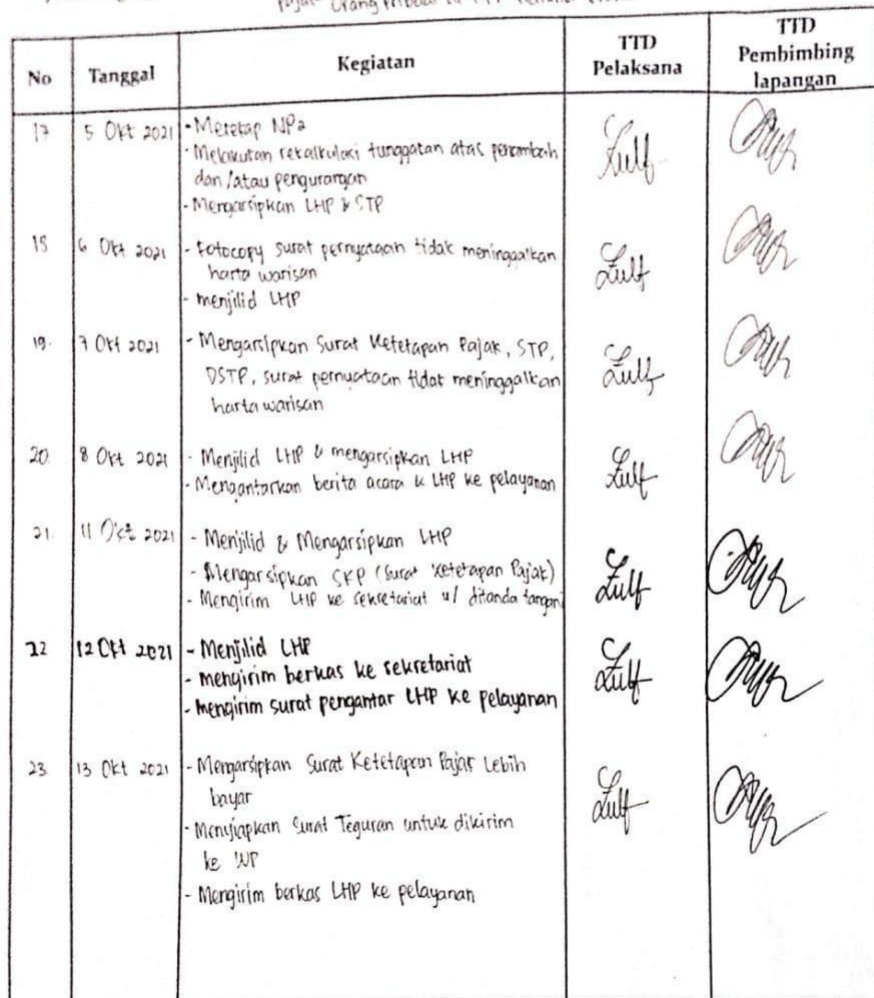 Pajak Orang Pribadi di
No Tanggal Kegiatan TTD Pelaksana TTD Pembimbing lapangan
17 5 Okt 2021 - Merekap NP2
- Melakukan rekalkulasi tunggakan atas penambah
dan /atau pengurangan
- Mengarsipkan LHP & STP
18 6 Okt 2021 - Fotocopy surat pernyataan tidak meninggalkan
harta warisan
- menjilid LHP
19. 7 Okt 2021 - Mengarsipkan Surat Ketetapan Pajak, STP,
DSTP, surat pernyataan tidak meninggalkan
harta warisan
20. 8 Okt 2021 - Menjilid LHP & mengarsipkan LHP
- Mengantarkan berita acara & LHP ke pelayanan
21. 11 Okt 2021 - Menjilid & Mengarsipkan LHP
- Mengarsipkan SKP (Surat Ketetapan Pajak)
- Mengirim LHP ke sekretariat u/ ditanda tangani
22 12 Okt 2021 - Menjilid LHP
- mengirim berkas ke sekretariat
- mengirim surat pengantar LHP ke pelayanan
23. 13 Okt 2021 - Mengarsipkan Surat Ketetapan Pajak Lebih
bayar
- Menyiapkan Surat Teguran untuk dikirim
ke WP
- Mengirim berkas LHP ke pelayanan